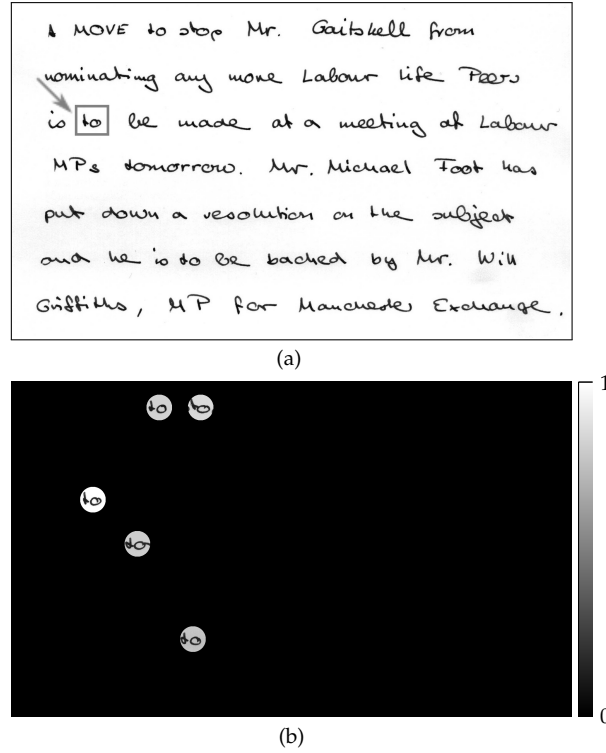 A MOVE to stop Mr. Gaitskell from
nominating any more Labour Life Peers
is to be made at a meeting of Labour
MPs tomorrow. Mr. Michael Foot has
put down a resolution on the subject
and he is to be backed by Mr. Will
Griffiths, MP for Manchester Exchange.
(a)
1
to to
to
to
to
0
(b)